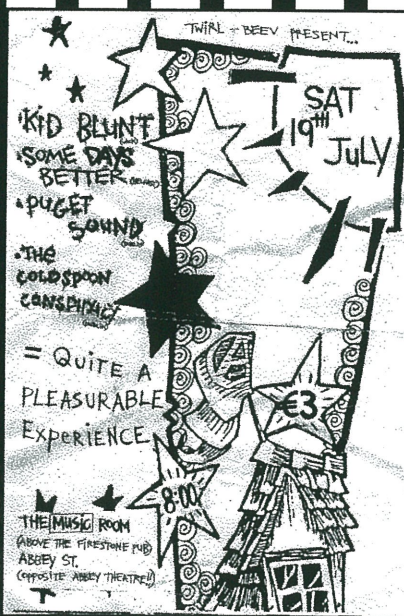 TWIRL - BEEV PRESENT...
SAT
19TH
JULY
• KID BLUNT
• SOME DAYS
BETTER
• PUGET
SOUND
• THE
COLDSPOON
CONSPIRACY
= QUITE A
PLEASURABLE
EXPERIENCE
€3
8:00
THE MUSIC ROOM
(ABOVE THE FIRESTONE PUB)
ABBEY ST.
(OPPOSITE ABBEY THEATRE!!)